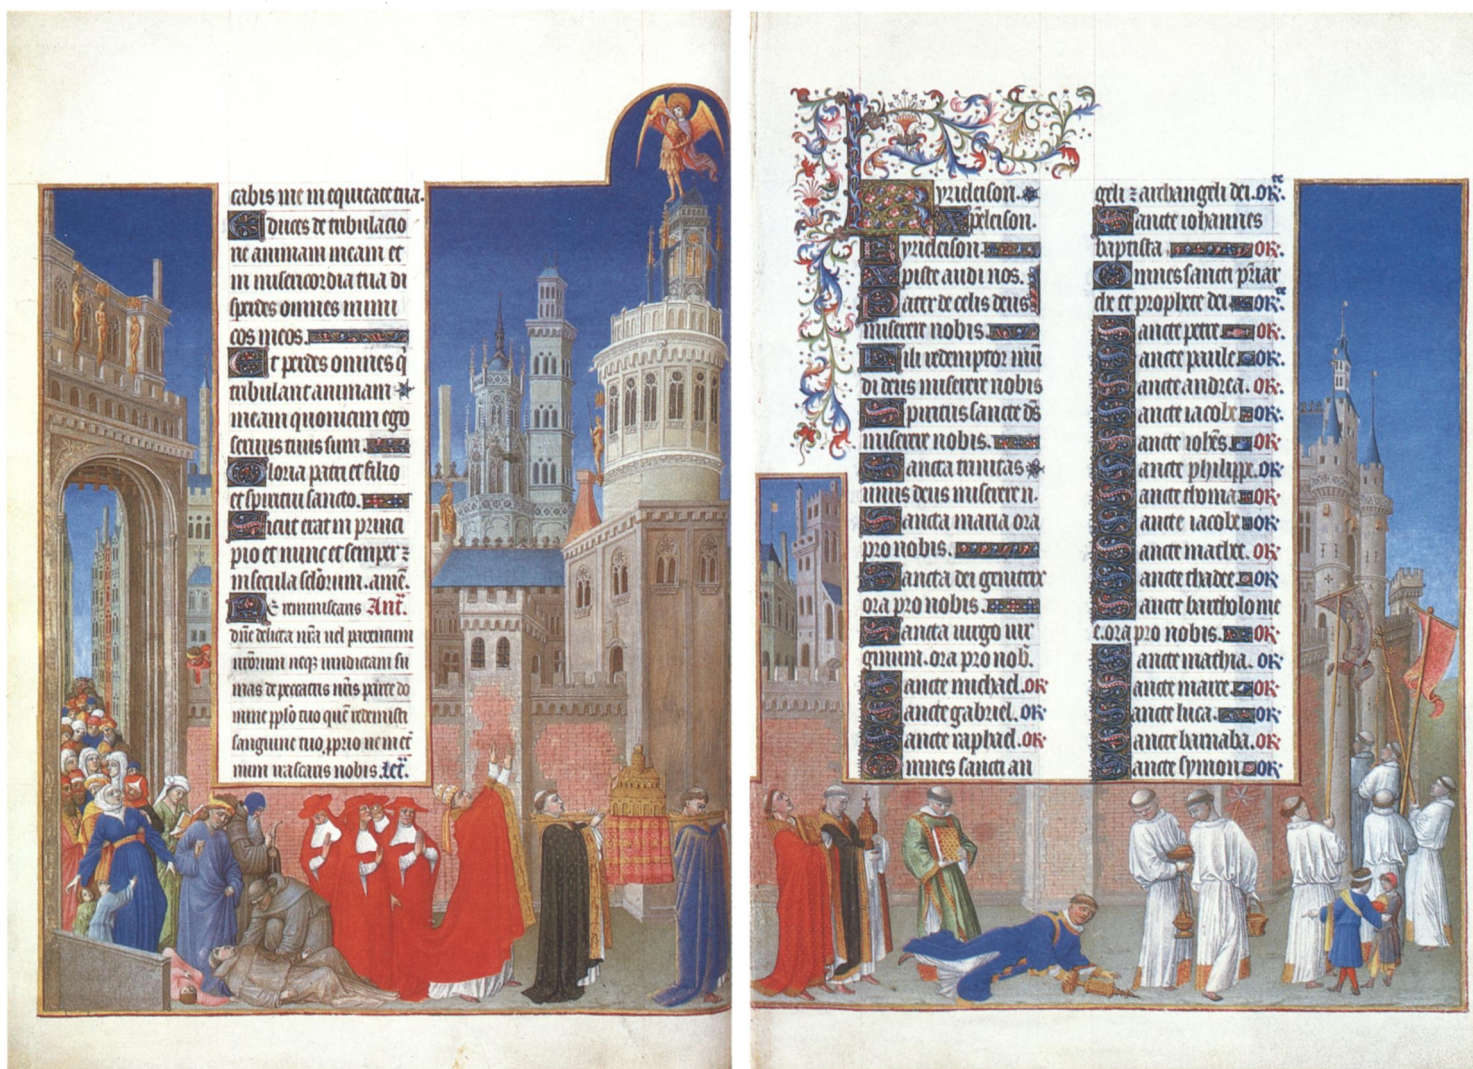 cabis me in equitate tua.
Educes de tribulacio
ne animam meam et
in misericordia tua di
sperdes omnes inimi
cos meos.
Et perdes omnes q̄
tribulant animam
meam quoniam ego
servus tuus sum.
Gloria patri et filio
et spiritui sancto.
Sicut erat in princi
pio et nunc et semper ⁊
in secula sc̄lorum. amē.
Ne reminiscaris Ant̄.
dn̄e delicta nr̄a vel parentum
nr̄orum neqꝫ vindictam su
mas de peccatis nr̄is parce do
mine pp̄lo tuo quē redemisti
sanguine tuo ꝓprio ne in et̄
num irascaris nobis. Let̄.
Kyrieleison.
Xp̄eleison.
Kyrieleison.
Xpiste audi nos.
Pater de celis deus
miserere nobis.
Fili redemptor mū
di deus miserere nobis
Spiritus sancte ds̄
miserere nobis.
Sancta trinitas
unus deus miserere n.
Sancta maria ora
pro nobis.
Sancta dei genitrix
ora pro nobis.
Sancta virgo vir
ginum. ora pro nob̄.
Sancte michael. or
Sancte gabriel. or
Sancte raphael. or
Omnes sancti an
geli ⁊ archangeli dei. or.
Sancte iohannes
baptista. or.
Omnes sancti p̄riar
che et prophete dei or.
Sancte petre. or.
Sancte paule or.
Sancte andrea. or.
Sancte iacobe or.
Sancte ioh̄es. or.
Sancte philippe. or
Sancte thoma or.
Sancte iacobe or
Sancte mathee. or.
Sancte thadee. or
Sancte bartholome
e. ora pro nobis. or.
Sancte mathia. or.
Sancte marce or.
Sancte luca. or
Sancte barnaba. or.
Sancte symon or.